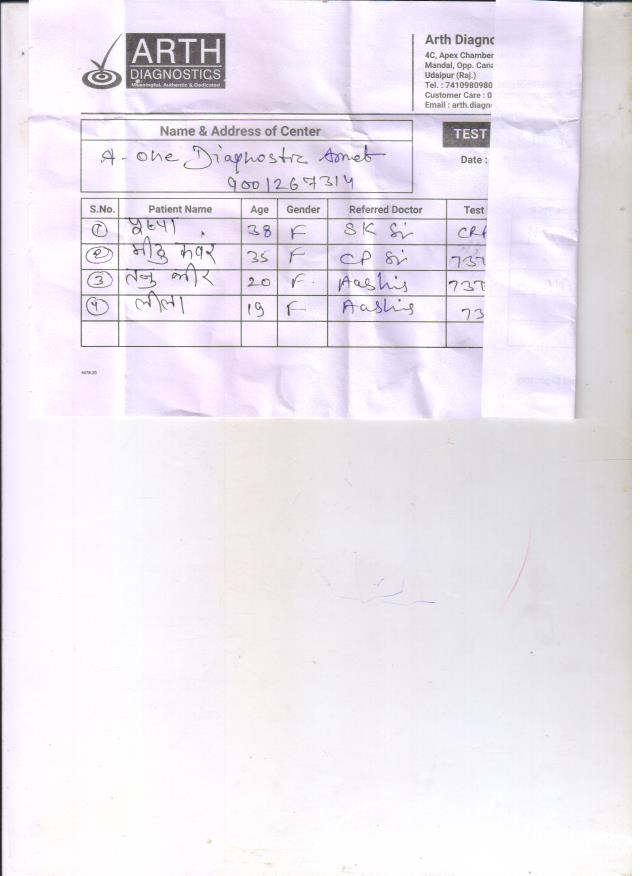 ARTH
DIAGNOSTICS
Meaningful, Authentic & Dedicated
Arth Diagno
4C, Apex Chamber
Mandal, Opp. Cana
Udaipur (Raj.)
Tel. : 7410980980
Customer Care : 0
Email : arth.diagn
Name & Address of Center
TEST
A-one Diagnostic Amet
9001267314
Date :
S.No. Patient Name Age Gender Referred Doctor Test
1 38 F SK Sir CRP
2 मीठु कवर 35 F CP Sir 737
3 तनु कीर 20 F. Aashis 737
4 लीला 19 F Aashis 73